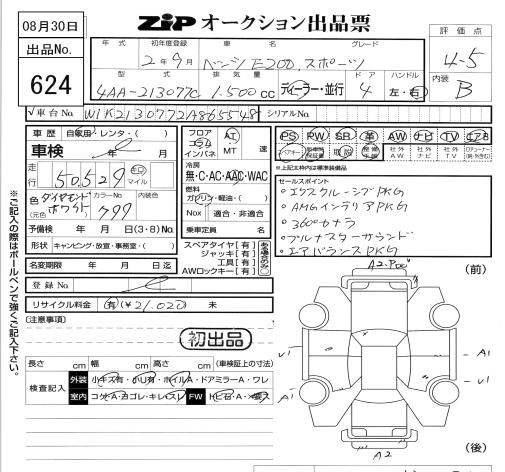 08月30日
ZIP オークション出品票
出品No.
624
評価点
4-5
内装
B
年式 初年度登録 車名 グレード
2年9月 ベンツ E200.スポーツ
型式 排気量 ドア ハンドル
4AA-213077C 1.500cc ディーラー・並行 4 左・右
√車台No. W1K2130772A865548 シリアルNo.
車歴 自家用・レンタ・( )
車検 年 月
走行 50,529 キロ マイル
色 ダイヤモンドホワイト カラーNo. 799 内装色
(元色)
予備検 年 月 日(3・8)No.
形状 キャンピング・放置・事務室・( )
名変期限 年 月 日迄
登録No.
リサイクル料金 有(¥21,020) 未
(注意事項)
フロア コラム インパネ AT MT 速
冷房
無・C・AC・AAC・WAC
燃料
ガソリン・軽油・( )
Nox 適合・非適合
乗車定員 名
スペアタイヤ[有]
ジャッキ[有]
工具[有]
AWロックキー[有]
PS PW SR 革 AW ナビ TV エアB
社外AW 社外ナビ 社外TV
※上記太枠内は標準装備品
セールスポイント
・エクスクルーシブPKG
・AMGインテリアPKG
・360°カメラ
・ブルメスターサウンド
・エアバランスPKG
初出品
長さ cm 幅 cm 高さ cm (車検証上の寸法)
検査記入 外装 小キズ有・小凹有・ホイルA・ドアミラーA・ワレ
室内 コゲA・ヨゴレ・キレ・スレ FW トビ石・A・
※ご記入の際はボールペンで強くご記入下さい。
(前)
A2.
U1
A1
U1
A1
A1
A2
(後)